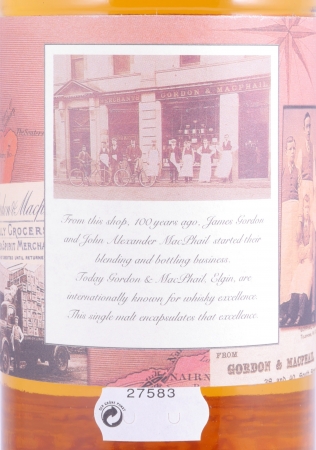 MERCHANTS GORDON & MACPHAIL
From this shop, 100 years ago, James Gordon
and John Alexander MacPhail started their
blending and bottling bussiness.
Today Gordon & MacPhail, Elgin, are
internationally known for whisky excellence.
This single malt encapsulates that excellence.
LY GROCERS
SPIRIT MERCHA
FROM
GORDON & MACPHAIL
NAIRN
27583